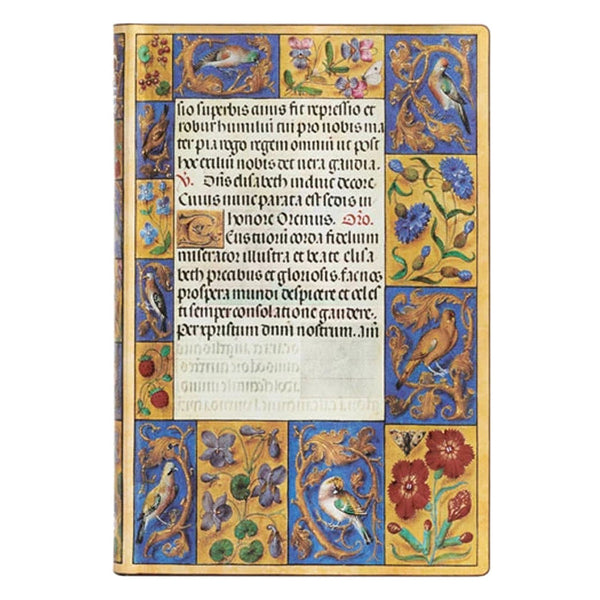 sio superbis cuius fit repressio et
robur humiliũ cui pro nobis ma
ter pia rogo regem omniũ ut post
hoc exiliũ nobis det uera gaudia.
V. Dñs elisabeth induit decore
Cuius nunc parata est sedis in
honore Oremus. Oro.
DEus tuorũ corda fidelium
miserator illustra et beate elisa
beth precibus et gloriosis. fac nos
prospera mundi despicere et celes
ti semper consolatione gaudere.
Per xpistum dnm nostrum. am